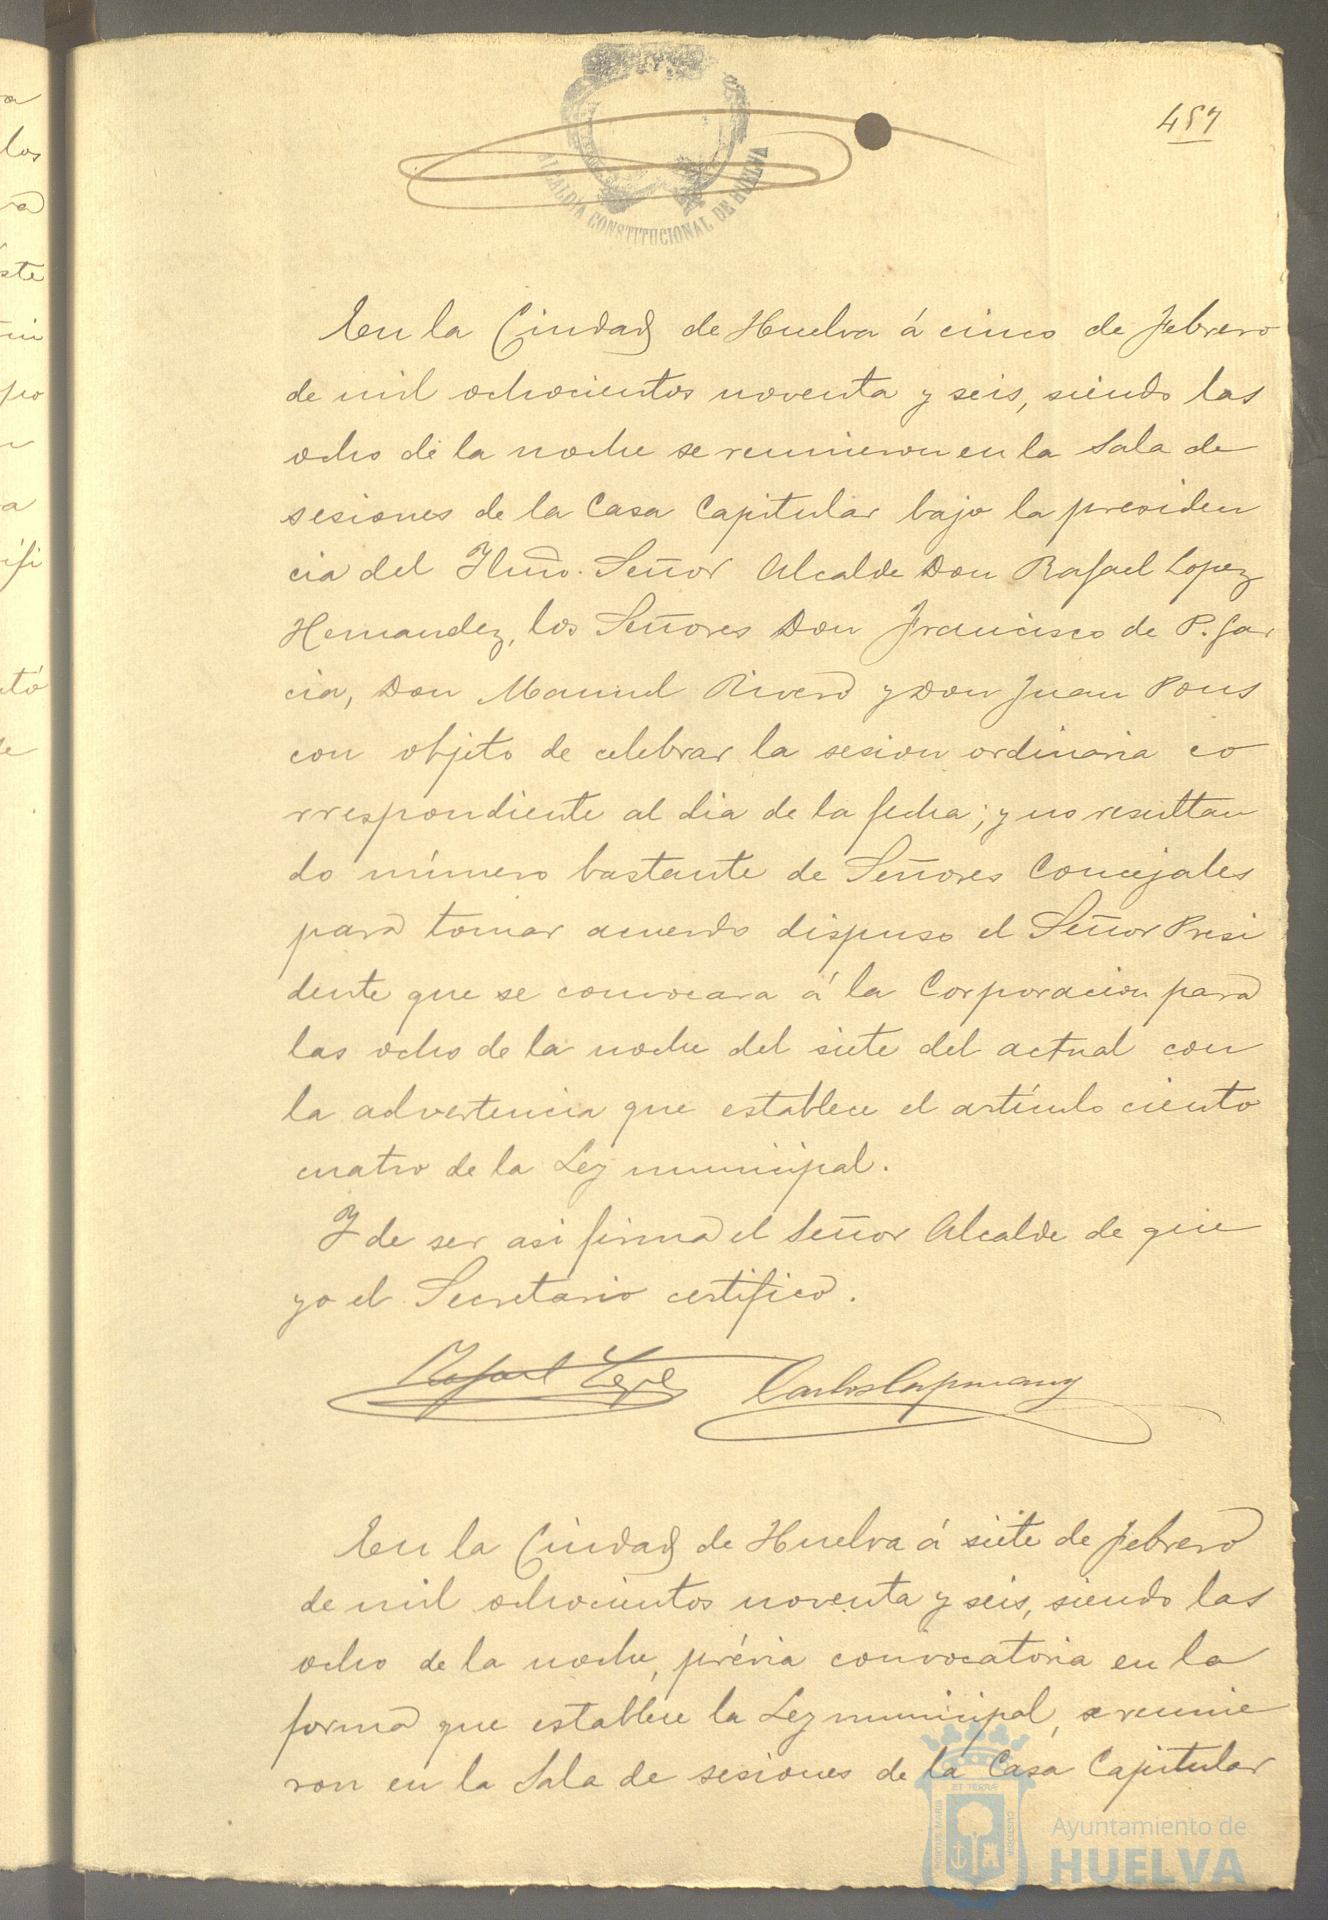 457
ALCALDÍA CONSTITUCIONAL DE HUELVA
En la Ciudad de Huelva á cinco de Febrero
de mil ochocientos noventa y seis, siendo las
ocho de la noche se reunieron en la Sala de
sesiones de la Casa Capitular bajo la presiden
cia del Iltmo. Señor Alcalde Don Rafael Lopez
Hernandez, los Señores Don Francisco de P. Gar
cia, Don Manuel Rivero y Don Juan Pons
con objeto de celebrar la sesion ordinaria co
rrespondiente al dia de la fecha; y no resultan
do número bastante de Señores Concejales
para tomar acuerdo dispuso el Señor Presi
dente que se convocara á la Corporacion para
las ocho de la noche del siete del actual con
la advertencia que establece el artículo ciento
cuatro de la Ley municipal.
Y de ser asi firma el Señor Alcalde de que
yo el Secretario certifico.
Rafael Lopez Carlos Capmany
En la Ciudad de Huelva á siete de Febrero
de mil ochocientos noventa y seis, siendo las
ocho de la noche, prévia convocatoria en la
forma que establece la Ley municipal, se reunie
ron en la Sala de sesiones de la Casa Capitular
ET TERRÆ
PORTUS MARIS
CUSTODIA
Ayuntamiento de
HUELVA